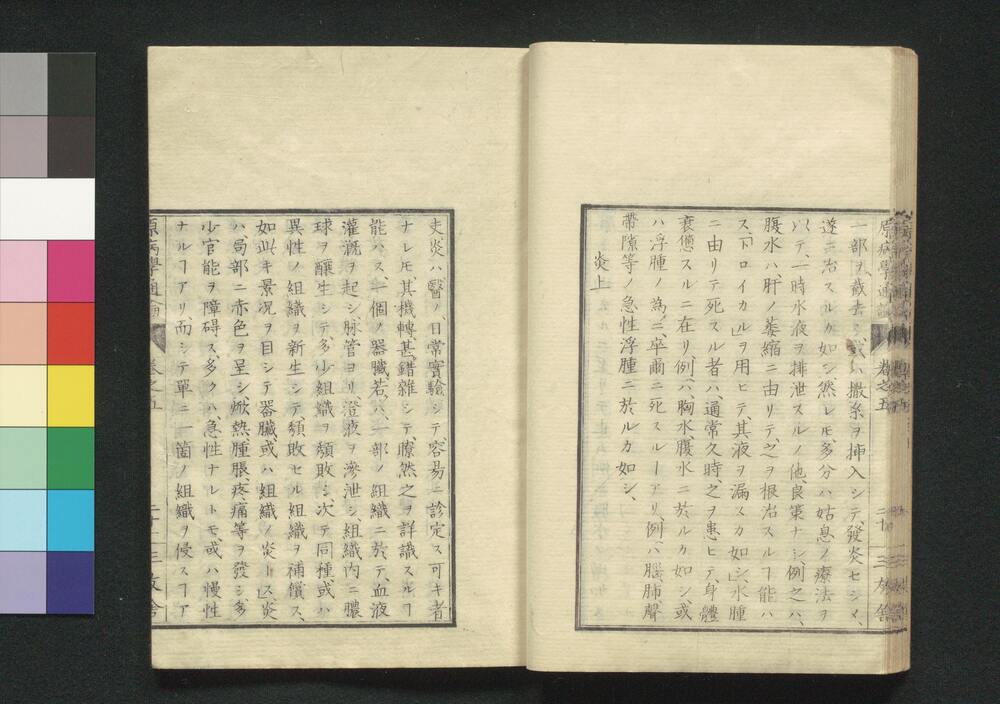 原病學通論 卷之五
一部ヲ、截去シ、或ハ撒糸ヲ挿入シテ、發炎セシメ、
遂ニ治スルカ如シ然レ𪜈、多分ハ姑息ノ療法ヲ
以テ、一時水液ヲ排泄スルノ他、良策ナシ、例之ハ、
腹水ハ、肝ノ萎縮ニ由リテ、之ヲ根治スルヿ能ハ
ス、「トロイカル」ヲ用ヒテ、其液ヲ漏スカ如シ、水腫
ニ由リテ死スル者ハ、通常久時、之ヲ患ヒテ、身體
衰憊スルニ在リ、例ハ、胸水、腹水ニ於ルカ如シ、或
ハ浮腫ノ爲ニ、卒爾ニ死スルヿアリ、例ハ腦、肺、聲
帶隙等ノ急性浮腫ニ於ルカ如シ、
炎上
夫炎ハ醫ノ日常實驗シテ、容易ニ診定ス可キ者
ナレ𪜈、其機轉甚錯雜シテ、瞭然之ヲ詳識スルヿ
能ハス、一個ノ器臟、若ハ、一部ノ組織ニ於テ、血液
灌漑ヲ起シ、脉管ヨリ、澄液ヲ滲泄シ、組織内ニ膿
球ヲ釀生シテ、多少組織ヲ頽敗シ、次テ同種或ハ
異性ノ組織ヲ新生シテ、頽敗セル組織ヲ補償ス、
如此キ景况ヲ目シテ器臟、或ハ組織ノ炎トス、炎
ハ、局部ニ赤色ヲ呈シ、焮熱、腫脹、疼痛等ヲ發シ、多
少官能ヲ障碍ス、多クハ、急性ナレトモ、或ハ慢性
ナルヿアリ、而シテ單ニ一箇ノ組織ヲ侵スヿア
原病學通論 卷之五